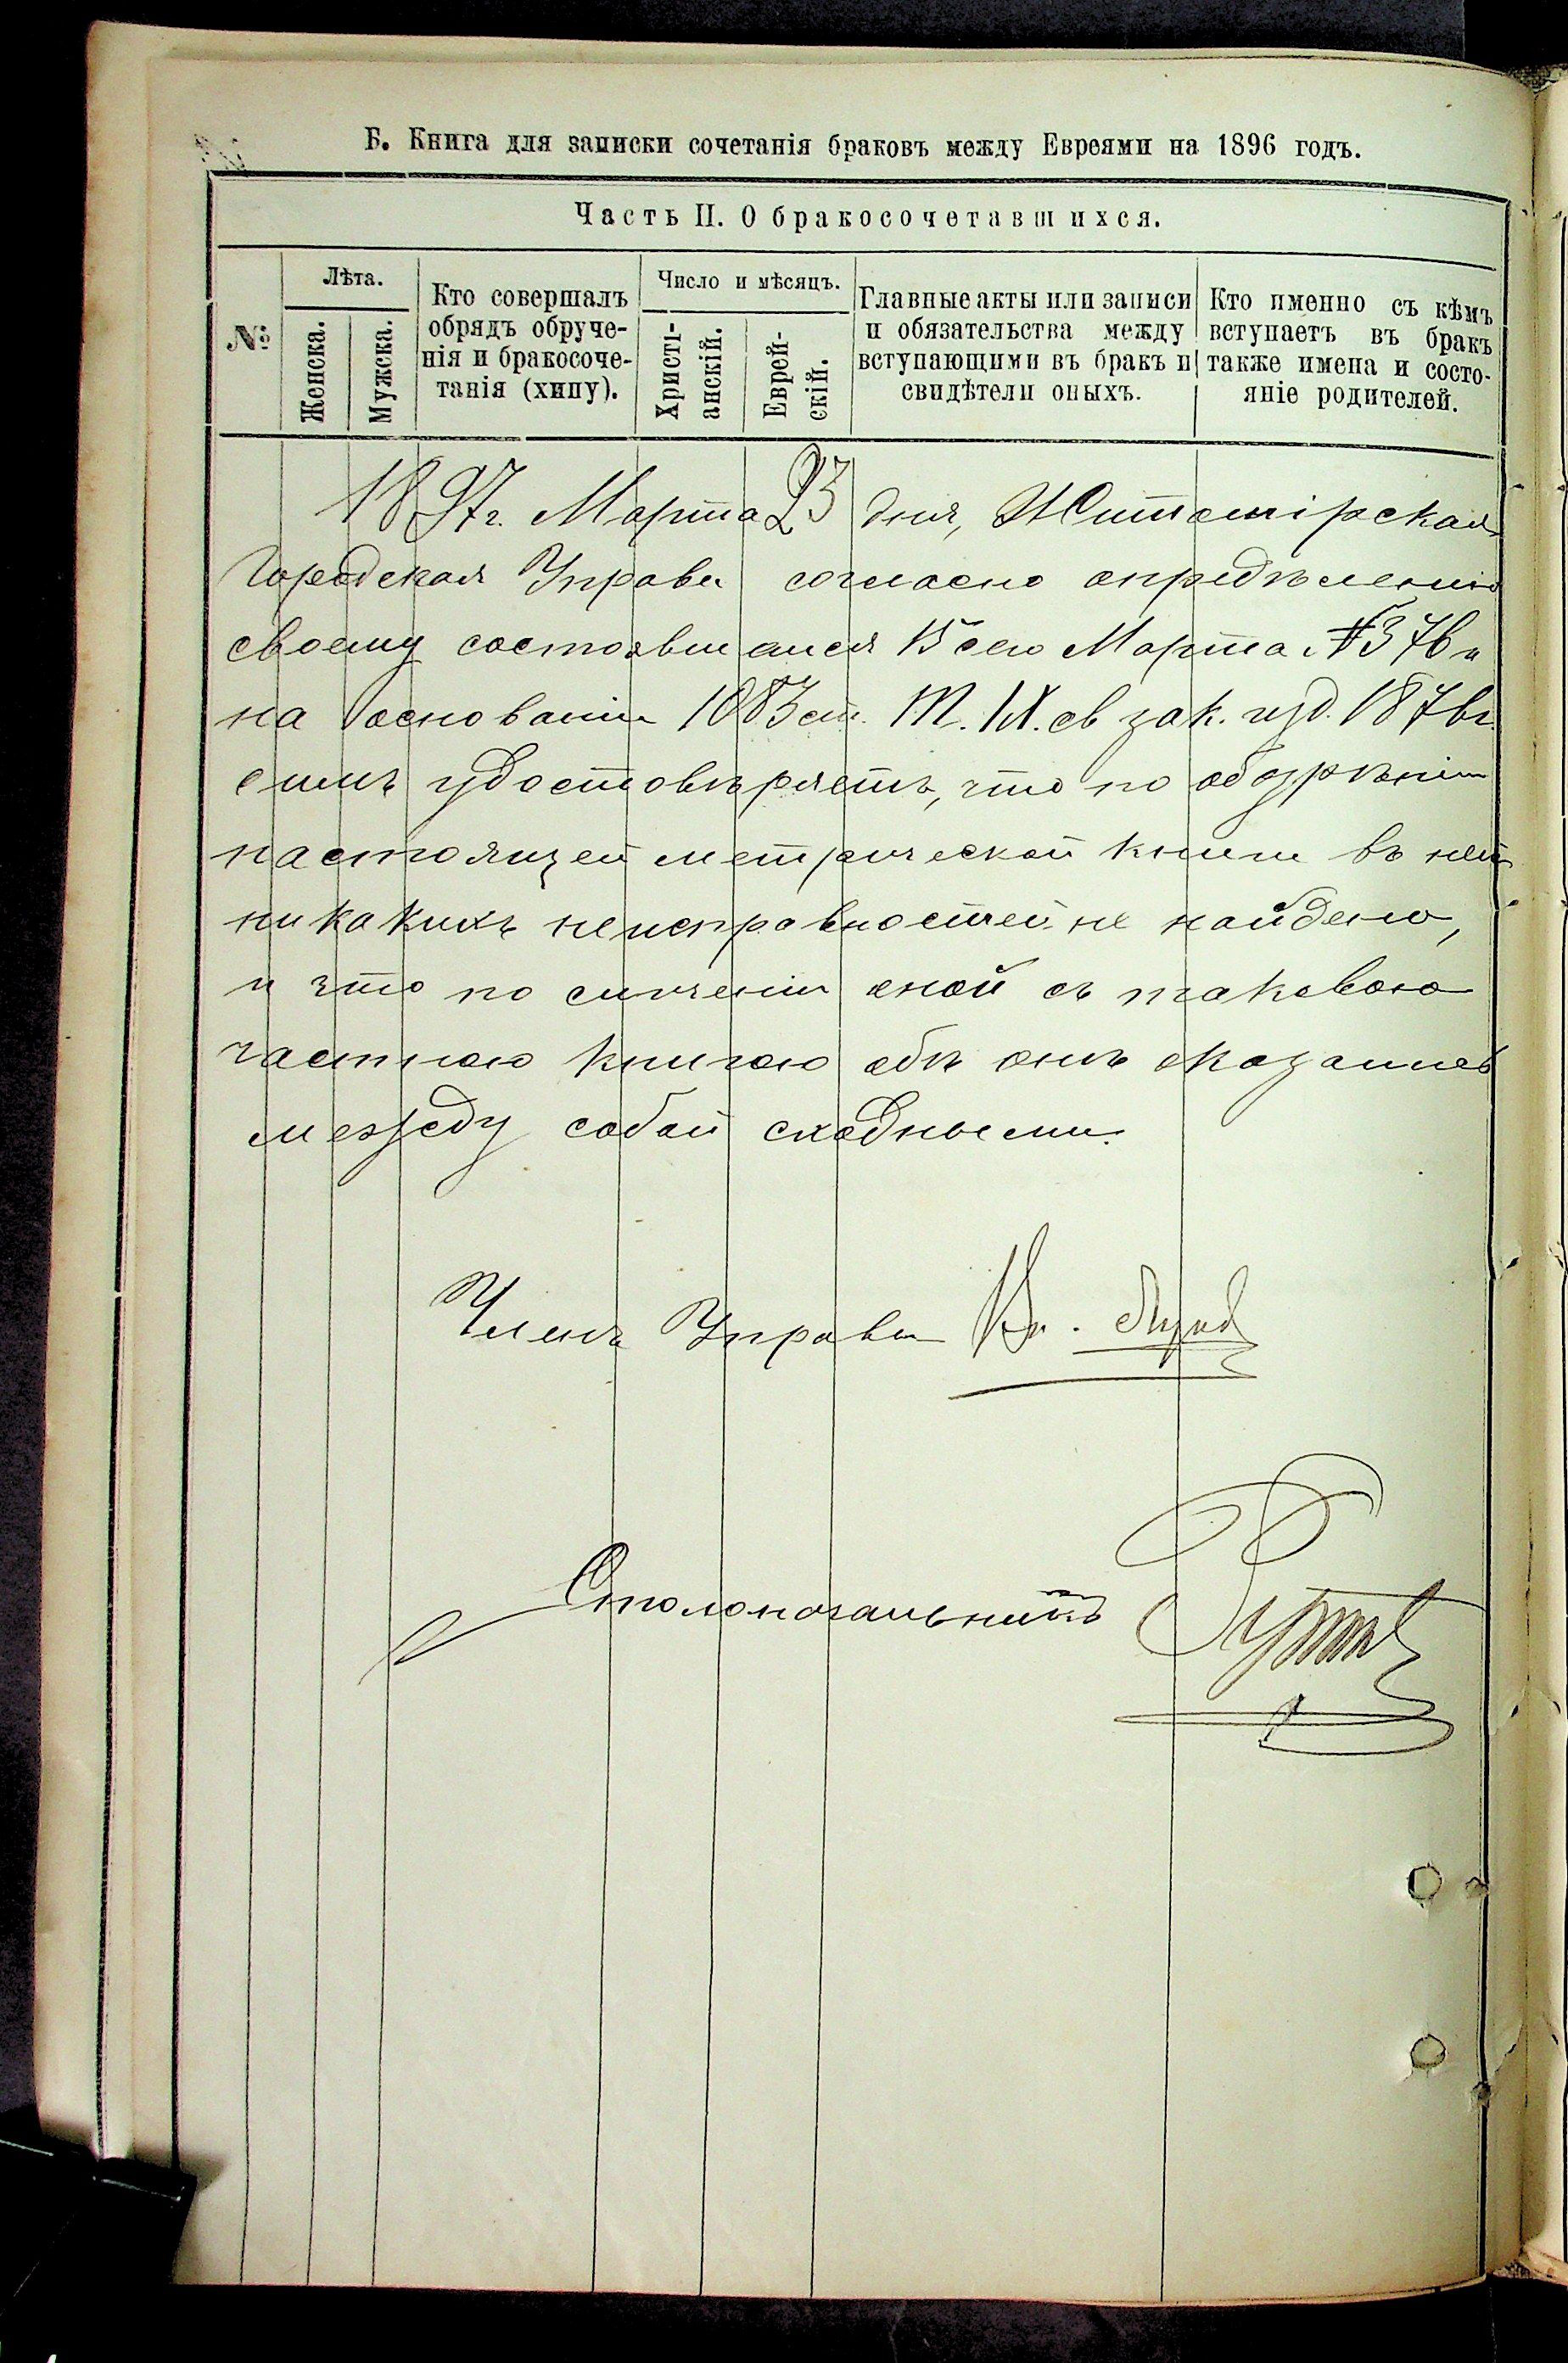 Б. Книга для записки сочетанія браковъ между Евреями на 1896 годъ.
Часть II. О бракосочетавшихся.
№
Лѣта.
Женска.
Мужска.
Кто совершалъ
обрядъ обруче-
нія и бракосоче-
танія (хипу).
Число и мѣсяцъ.
Христі-
анскій.
Еврей-
скій.
Главные акты или записи
и обязательства между
вступающими въ бракъ и
свидѣтели оныхъ.
Кто именно съ кѣмъ
вступаетъ въ бракъ
также имена и состо-
яніе родителей.
1897г. Марта 23 дня, Житомірская
Городская Управа согласно опредѣленію
своему состоявшемуся 15 сего Марта №376 и
на основаніи 1083 ст. Т. IX. св зак. изд. 1876г.
симъ удостовѣряетъ, что по обозрѣніи
настоящей метрической книги въ ней
никакихъ неисправностей не найдено,
и что по сличеніи оной съ таковою
частною книгою обѣ онѣ оказались
между собой сходными.
Членъ Управы
Столоначальникъ